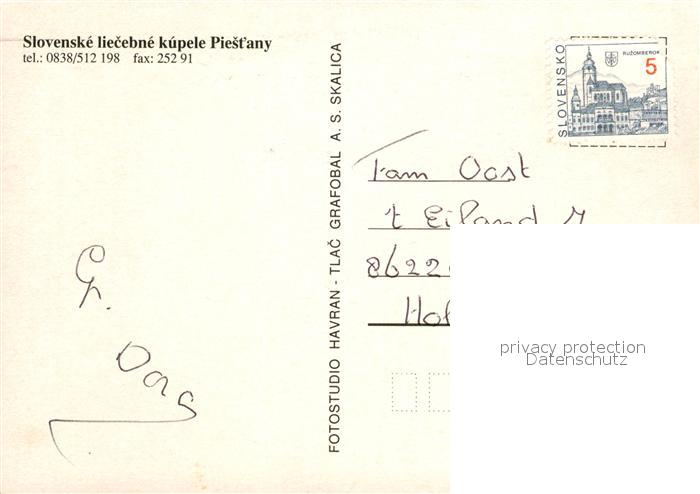 Slovenské liečebné kúpele Piešťany
tel.: 0838/512 198 fax: 252 91
FOTOSTUDIO HAVRAN - TLAČ GRAFOBAL A. S. SKALICA
SLOVENSKO
RUŽOMBEROK
5
Fam Oost
't Eiland
8622
Hol
Gr.
privacy protection
Datenschutz